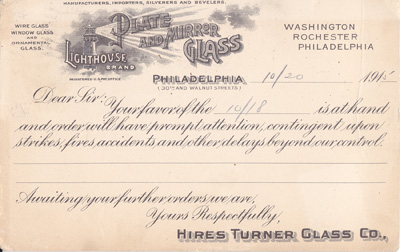 MANUFACTURERS, IMPORTERS, SILVERERS AND BEVELERS.
WIRE GLASS
WINDOW GLASS
AND
ORNAMENTAL
GLASS.
PLATE
AND MIRROR
GLASS
LIGHTHOUSE
BRAND
REGISTERED U.S. PAT. OFFICE
WASHINGTON
ROCHESTER
PHILADELPHIA
PHILADELPHIA 10/20 1915
(30TH AND WALNUT STREETS)
Dear Sir:
Your favor of the 10/18 is at hand
and order will have prompt attention, contingent upon
strikes, fires, accidents and other delays beyond our control.
Awaiting your further orders, we are,
Yours Respectfully,
HIRES TURNER GLASS CO.,